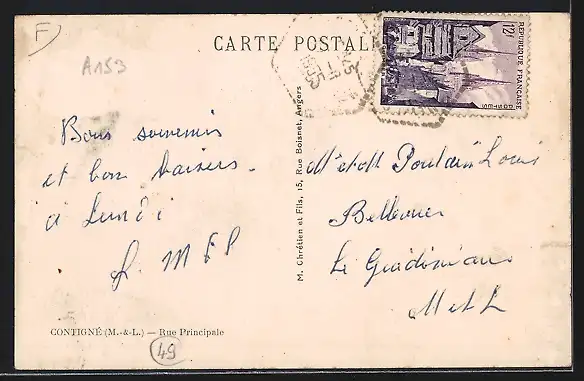 F
CARTE POSTALE
A153
12f
REPUBLIQUE FRANÇAISE
POSTES
Bons souvenirs
et bon baisers.
à Lundi
M. Chrétien et Fils, 15, Rue Boisnet, Angers
M et Mme Poulain Louis
Bellevue
M et L
CONTIGNÉ (M.-&-L.) — Rue Principale
49